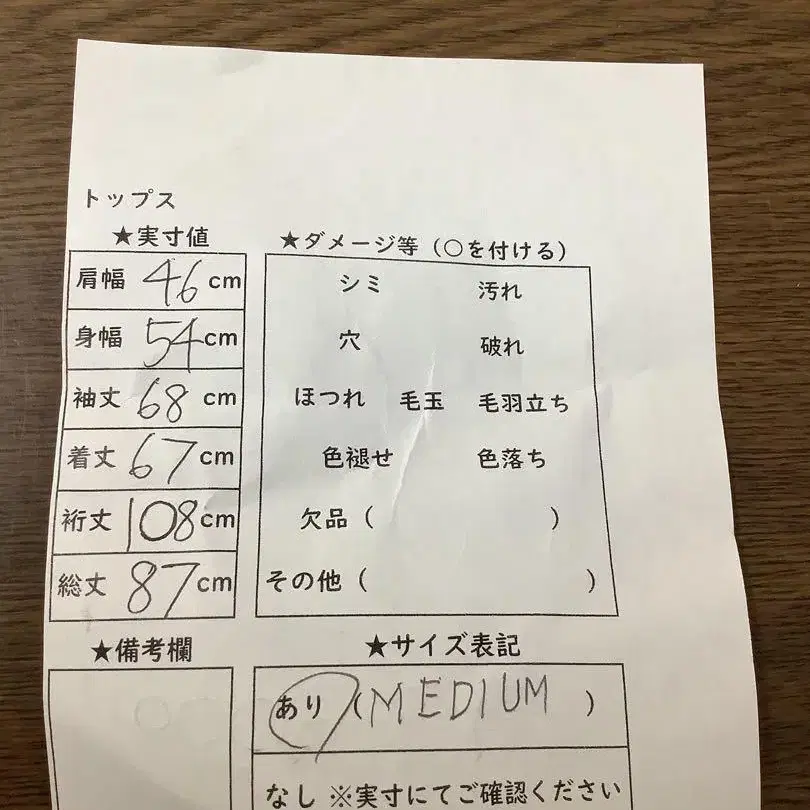 トップス
★実寸値
肩幅 46 cm
身幅 54 cm
袖丈 68 cm
着丈 67 cm
裄丈 108 cm
総丈 87 cm
★備考欄
★ダメージ等（○を付ける）
シミ 汚れ
穴 破れ
ほつれ 毛玉 毛羽立ち
色褪せ 色落ち
欠品（ ）
その他（ ）
★サイズ表記
あり（MEDIUM）
なし ※実寸にてご確認ください